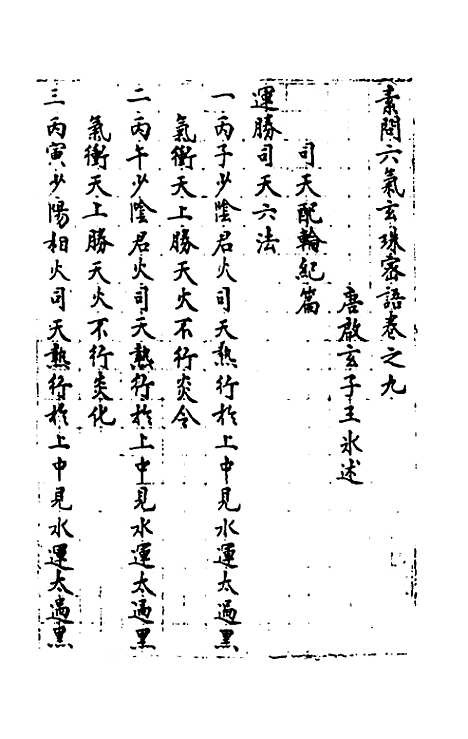 素問六氣玄珠密語卷之九
唐啟玄子王氷述
司天配輪紀篇
運勝司天六法
一丙子少陰君火司天熱行於上中見水運太過黑
氣衝天上勝天火不行炎令
二丙午少陰君火司天熱行於上中見水運太過黑
氣衝天上勝天火不行炎化
三丙寅少陽相火司天熱行於上中見水運太過黑